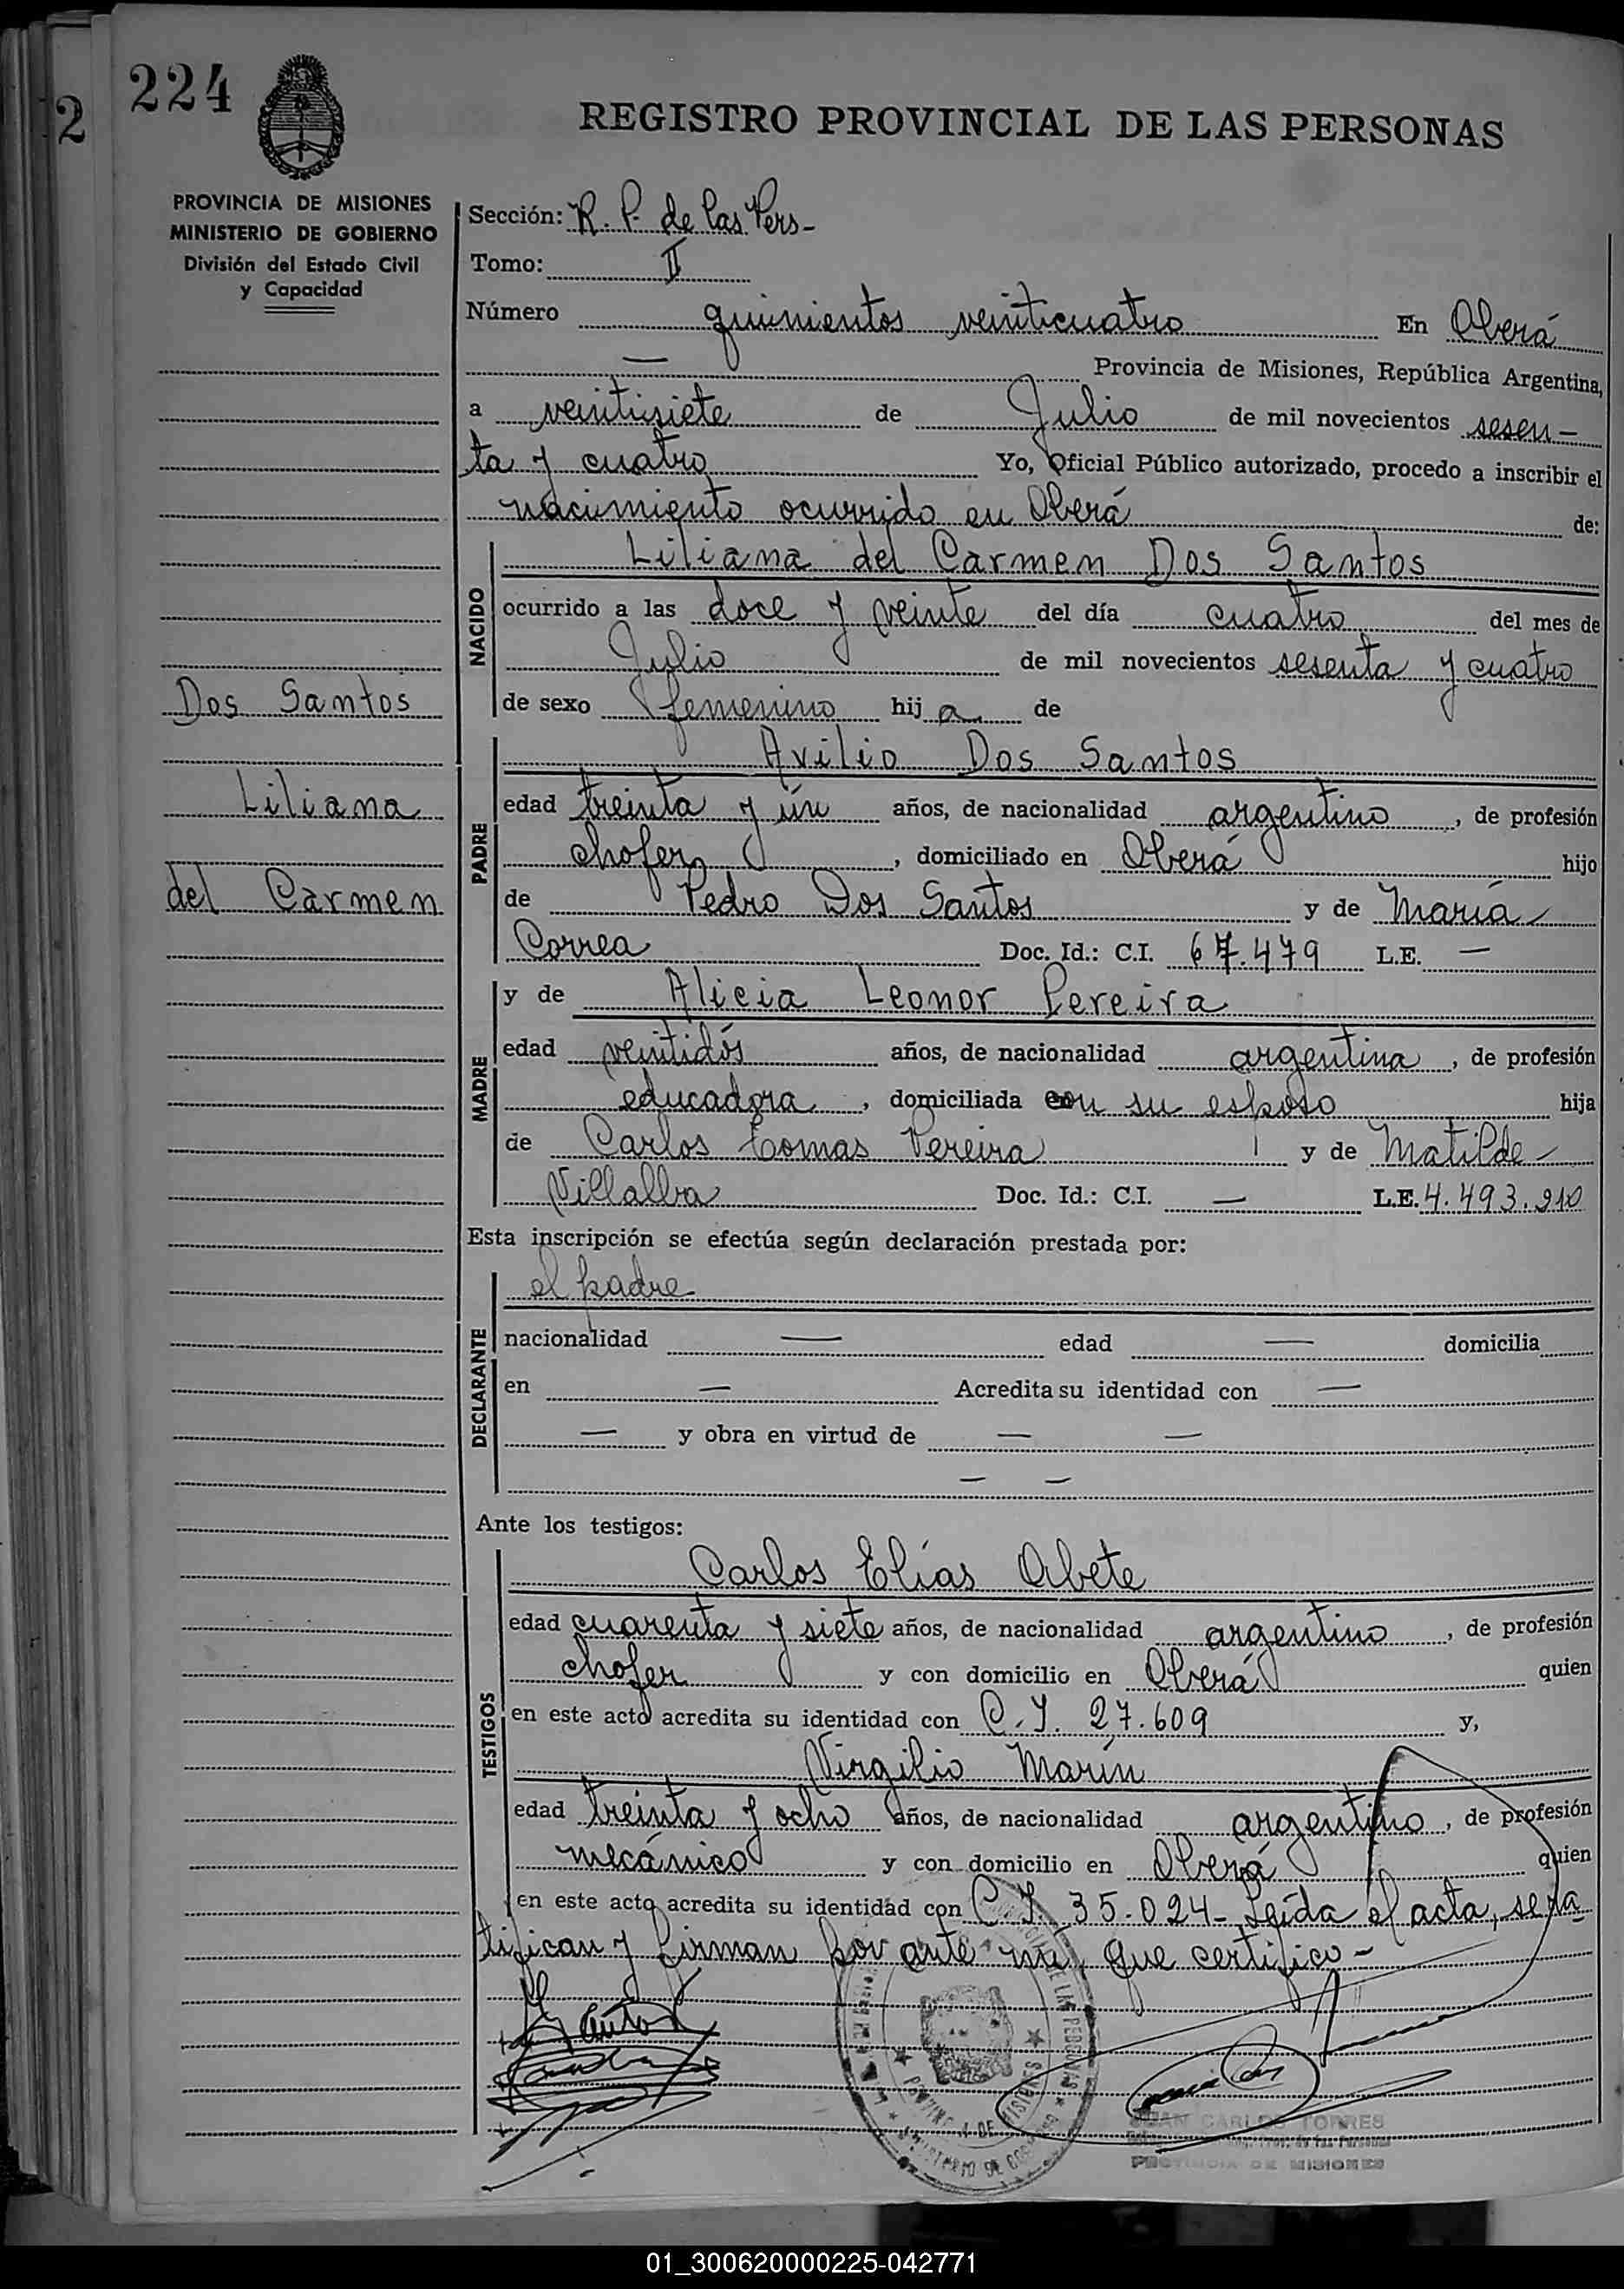 224
2
REGISTRO PROVINCIAL DE LAS PERSONAS
PROVINCIA DE MISIONES
MINISTERIO DE GOBIERNO
División del Estado Civil
y Capacidad
Dos Santos
Liliana
del Carmen
Sección: R. P. de las Pers-
Tomo: II
Número quinientos veinticuatro En Oberá
— Provincia de Misiones, República Argentina,
a veintisiete de Julio de mil novecientos sesen-
ta y cuatro Yo, Oficial Público autorizado, procedo a inscribir el
nacimiento ocurrido en Oberá de:
NACIDO
Liliana del Carmen Dos Santos
ocurrido a las doce y veinte del día cuatro del mes de
Julio de mil novecientos sesenta y cuatro
de sexo femenino hija de
PADRE
Avilio Dos Santos
edad treinta y ún años, de nacionalidad argentino, de profesión
chofer, domiciliado en Oberá hijo
de Pedro Dos Santos y de María
Correa Doc. Id.: C.I. 67.479 L.E. —
MADRE
y de Alicia Leonor Pereira
edad veintidós años, de nacionalidad argentina, de profesión
educadora, domiciliada con su esposo hija
de Carlos Tomas Pereira y de Matilde
Villalba Doc. Id.: C.I. — L.E. 4.493.910
Esta inscripción se efectúa según declaración prestada por:
DECLARANTE
el padre
nacionalidad — edad — domicilia
en — Acredita su identidad con —
— y obra en virtud de — —
— —
Ante los testigos:
TESTIGOS
Carlos Elías Abete
edad cuarenta y siete años, de nacionalidad argentino, de profesión
chofer y con domicilio en Oberá quien
en este acto acredita su identidad con C.I. 27.609 y,
Virgilio Marín
edad treinta y ocho años, de nacionalidad argentino, de profesión
mecánico y con domicilio en Oberá quien
en este acto acredita su identidad con C.I. 35.024- Leída el acta, se ra
tifican y firman por ante mi, que certifico-
DE LAS PERSONAS
PROVINCIA DE MISIONES
MINISTERIO DE GOBIERNO
JUAN CARLOS TORRES
PROVINCIA DE MISIONES
01_300620000225-042771